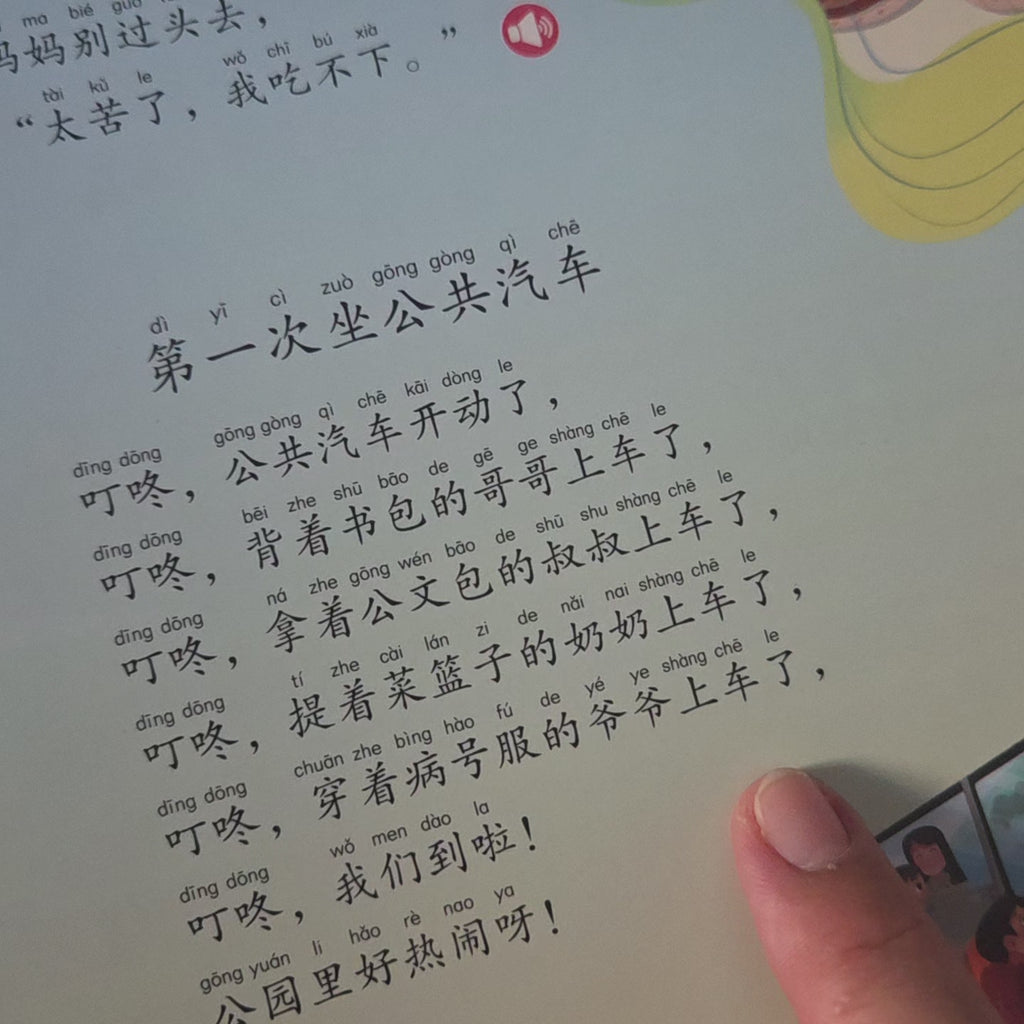 妈妈别过头去，
mɑ bié guo tóu qù
“太苦了，我吃不下。”
tài kǔ le wǒ chī bú xià
dì yī cì zuò gōng gòng qì chē
第一次坐公共汽车
dīng dōng gōng gòng qì chē kāi dòng le
叮咚，公共汽车开动了，
dīng dōng bēi zhe shū bāo de gē ge shàng chē le
叮咚，背着书包的哥哥上车了，
dīng dōng ná zhe gōng wén bāo de shū shu shàng chē le
叮咚，拿着公文包的叔叔上车了，
dīng dōng tí zhe cài lán zi de nǎi nai shàng chē le
叮咚，提着菜篮子的奶奶上车了，
dīng dōng chuān zhe bìng hào fú de yé ye shàng chē le
叮咚，穿着病号服的爷爷上车了，
dīng dōng wǒ men dào la
叮咚，我们到啦！
gōng yuán li hǎo rè nao ya
公园里好热闹呀！